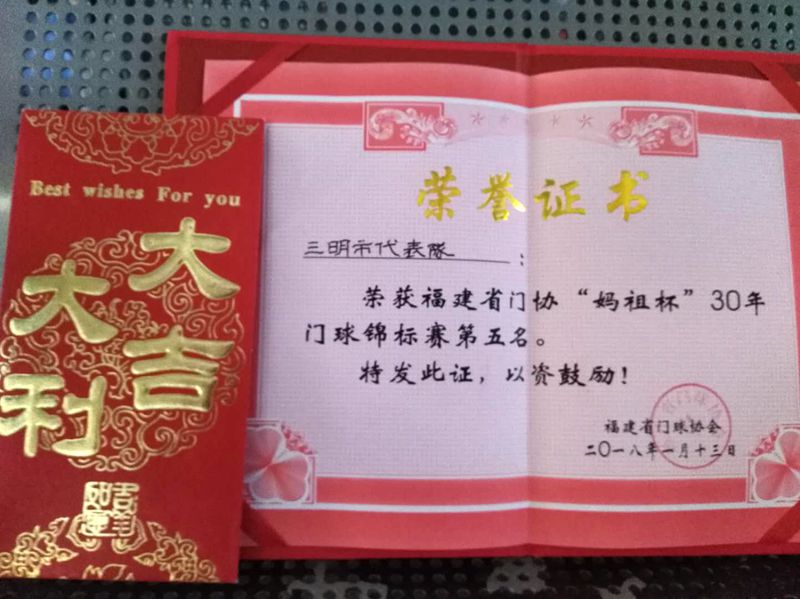 Best wishes For you
大吉
大利
荣誉证书
三明市代表隊：
荣获福建省门协“妈祖杯”30年
门球锦标赛第五名。
特发此证，以资鼓励！
福建省门球协会
二〇一八年一月十三日